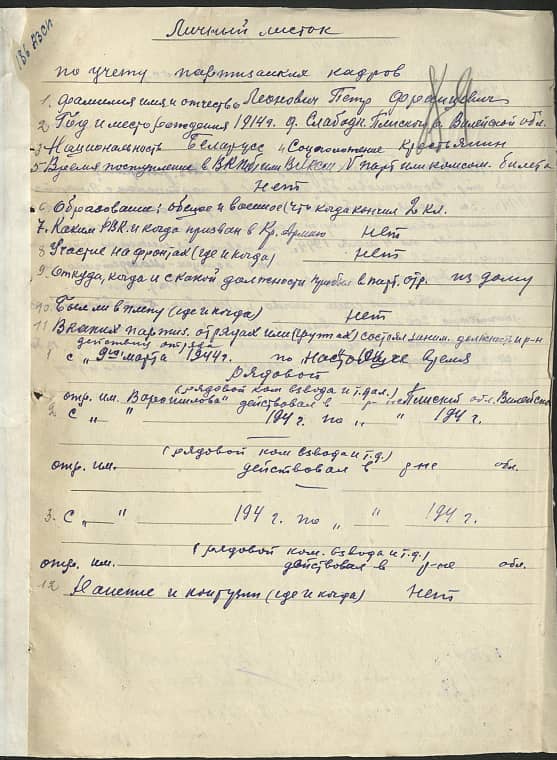 Личный листок
по учету партизанских кадров
1. Фамилия имя и отчество Леонович Петр
2. Год и место рождения 1914 г. д. Слабодк. Плиского р Вилейской обл.
3. Национальность Беларусс 4 Соцположение Крестьянин
5 Время поступление в ВКП(б) или № парт или комсом. билета
Нет
6. Образование: общее и военное (что когда кончил 2 кл.
7. Каким РВК и когда призван в Кр. Армию Нет
8 Участие на фронтах (где и когда) Нет
9. Откуда, когда и с какой должности прибыл в парт. отр. из дому
10. Был ли в плену (где и когда) Нет
11 В каких партиз. отрядах или (группах) состоял, заним. должность и р-н
действий отряда
1 с „ марта 1944 г. по Настоящие время
рядовой
(рядовой ком взвода и т. дал.)
отр. им. Ворошилова" действовал в р-не Плиский обл. Вилейской
2 с „ " 194 г. по „ " 194 г.
(рядовой ком взвода и т.д.)
отр. им. действовал в р-не обл.
3. с „ " 194 г. по „ " 194 г.
(рядовой ком. взвода и т.д.)
отр. им. действовал в р-не обл.
12 Ранение и контузии (где и когда) Нет